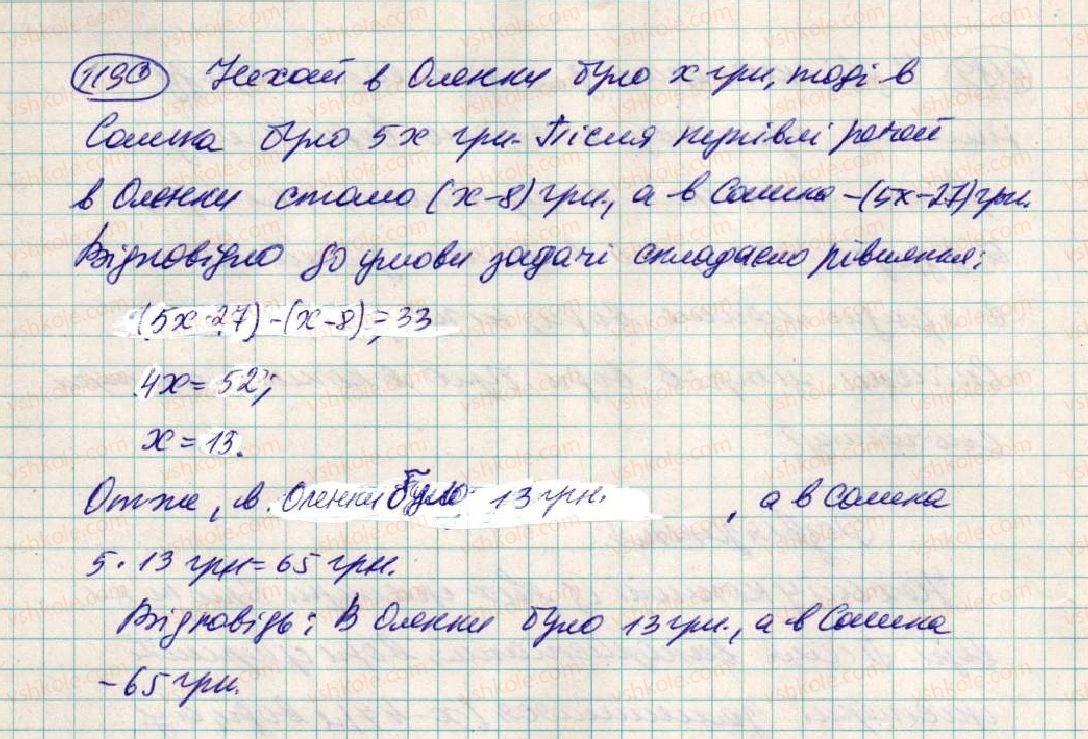 1190 Нехай в Оленки було x грн, тоді в
Сашка було 5x грн. Після купівлі речей
в Оленки стало (x-8) грн., а в Сашка -(5x-27) грн.
Відповідно до умови задачі складаємо рівняння:
(5x-27)-(x-8)=33
4x=52;
x=13.
Отже, в Оленки було 13 грн., а в Сашка
5·13 грн=65 грн.
Відповідь: В Оленки було 13 грн., а в Сашка
-65 грн.